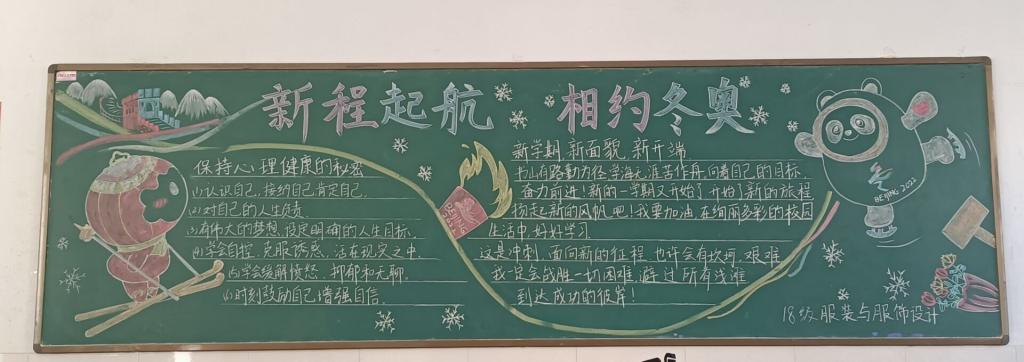 新程起航 相约冬奥
保持心理健康的秘密
(1)认识自己,接纳自己肯定自己.
(2)对自己的人生负责.
(3)有伟大的梦想,设定明确的人生目标.
(4)学会自控,克服诱惑,活在现实之中.
(5)学会缓解愤怒,抑郁和无聊.
(6)时刻鼓励自己增强自信.
新学期,新面貌,新开端
书山有路勤为径,学海无涯苦作舟,向着自己的目标,
奋力前进!新的一学期又开始了,开始了新的旅程
扬起新的风帆吧!我要加油,在绚丽多彩的校园
生活中,好好学习
这是冲刺,面向新的征程,也许会有坎坷,艰难
我一定会战胜一切困难,游过所有浅滩
到达成功的彼岸!
BEIJING 2022
18级服装与服饰设计